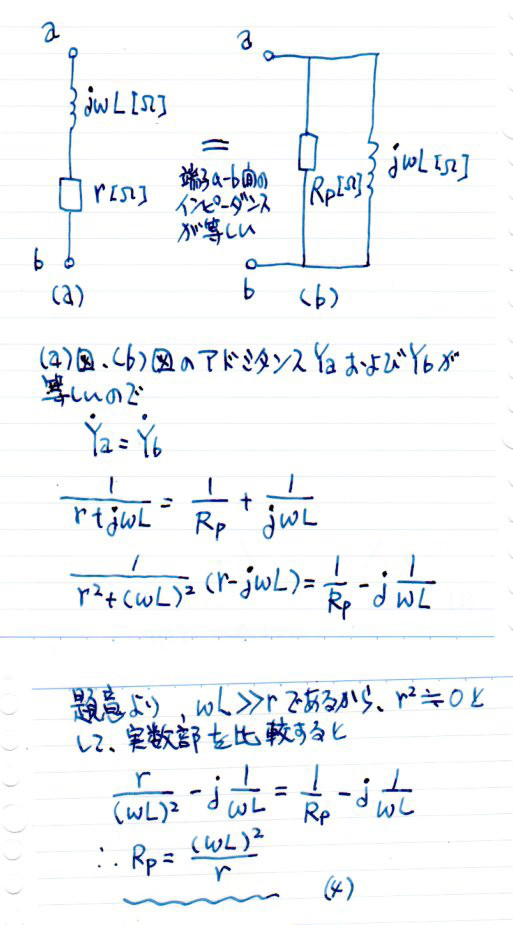 a
jωL[Ω]
r[Ω]
b
(a)
=
端子a-b間の
インピーダンス
が等しい
a
Rp[Ω]
jωL[Ω]
b
(b)
(a)図、(b)図のアドミタンスẎaおよびẎbが
等しいので
Ẏa = Ẏb
1/(r+jωL) = 1/Rp + 1/(jωL)
1/(r²+(ωL)²) (r-jωL) = 1/Rp - j 1/(ωL)
題意より、ωL≫rであるから、r²≒0と
して、実数部を比較すると
r/(ωL)² - j 1/(ωL) = 1/Rp - j 1/(ωL)
∴ Rp = (ωL)²/r
(4)